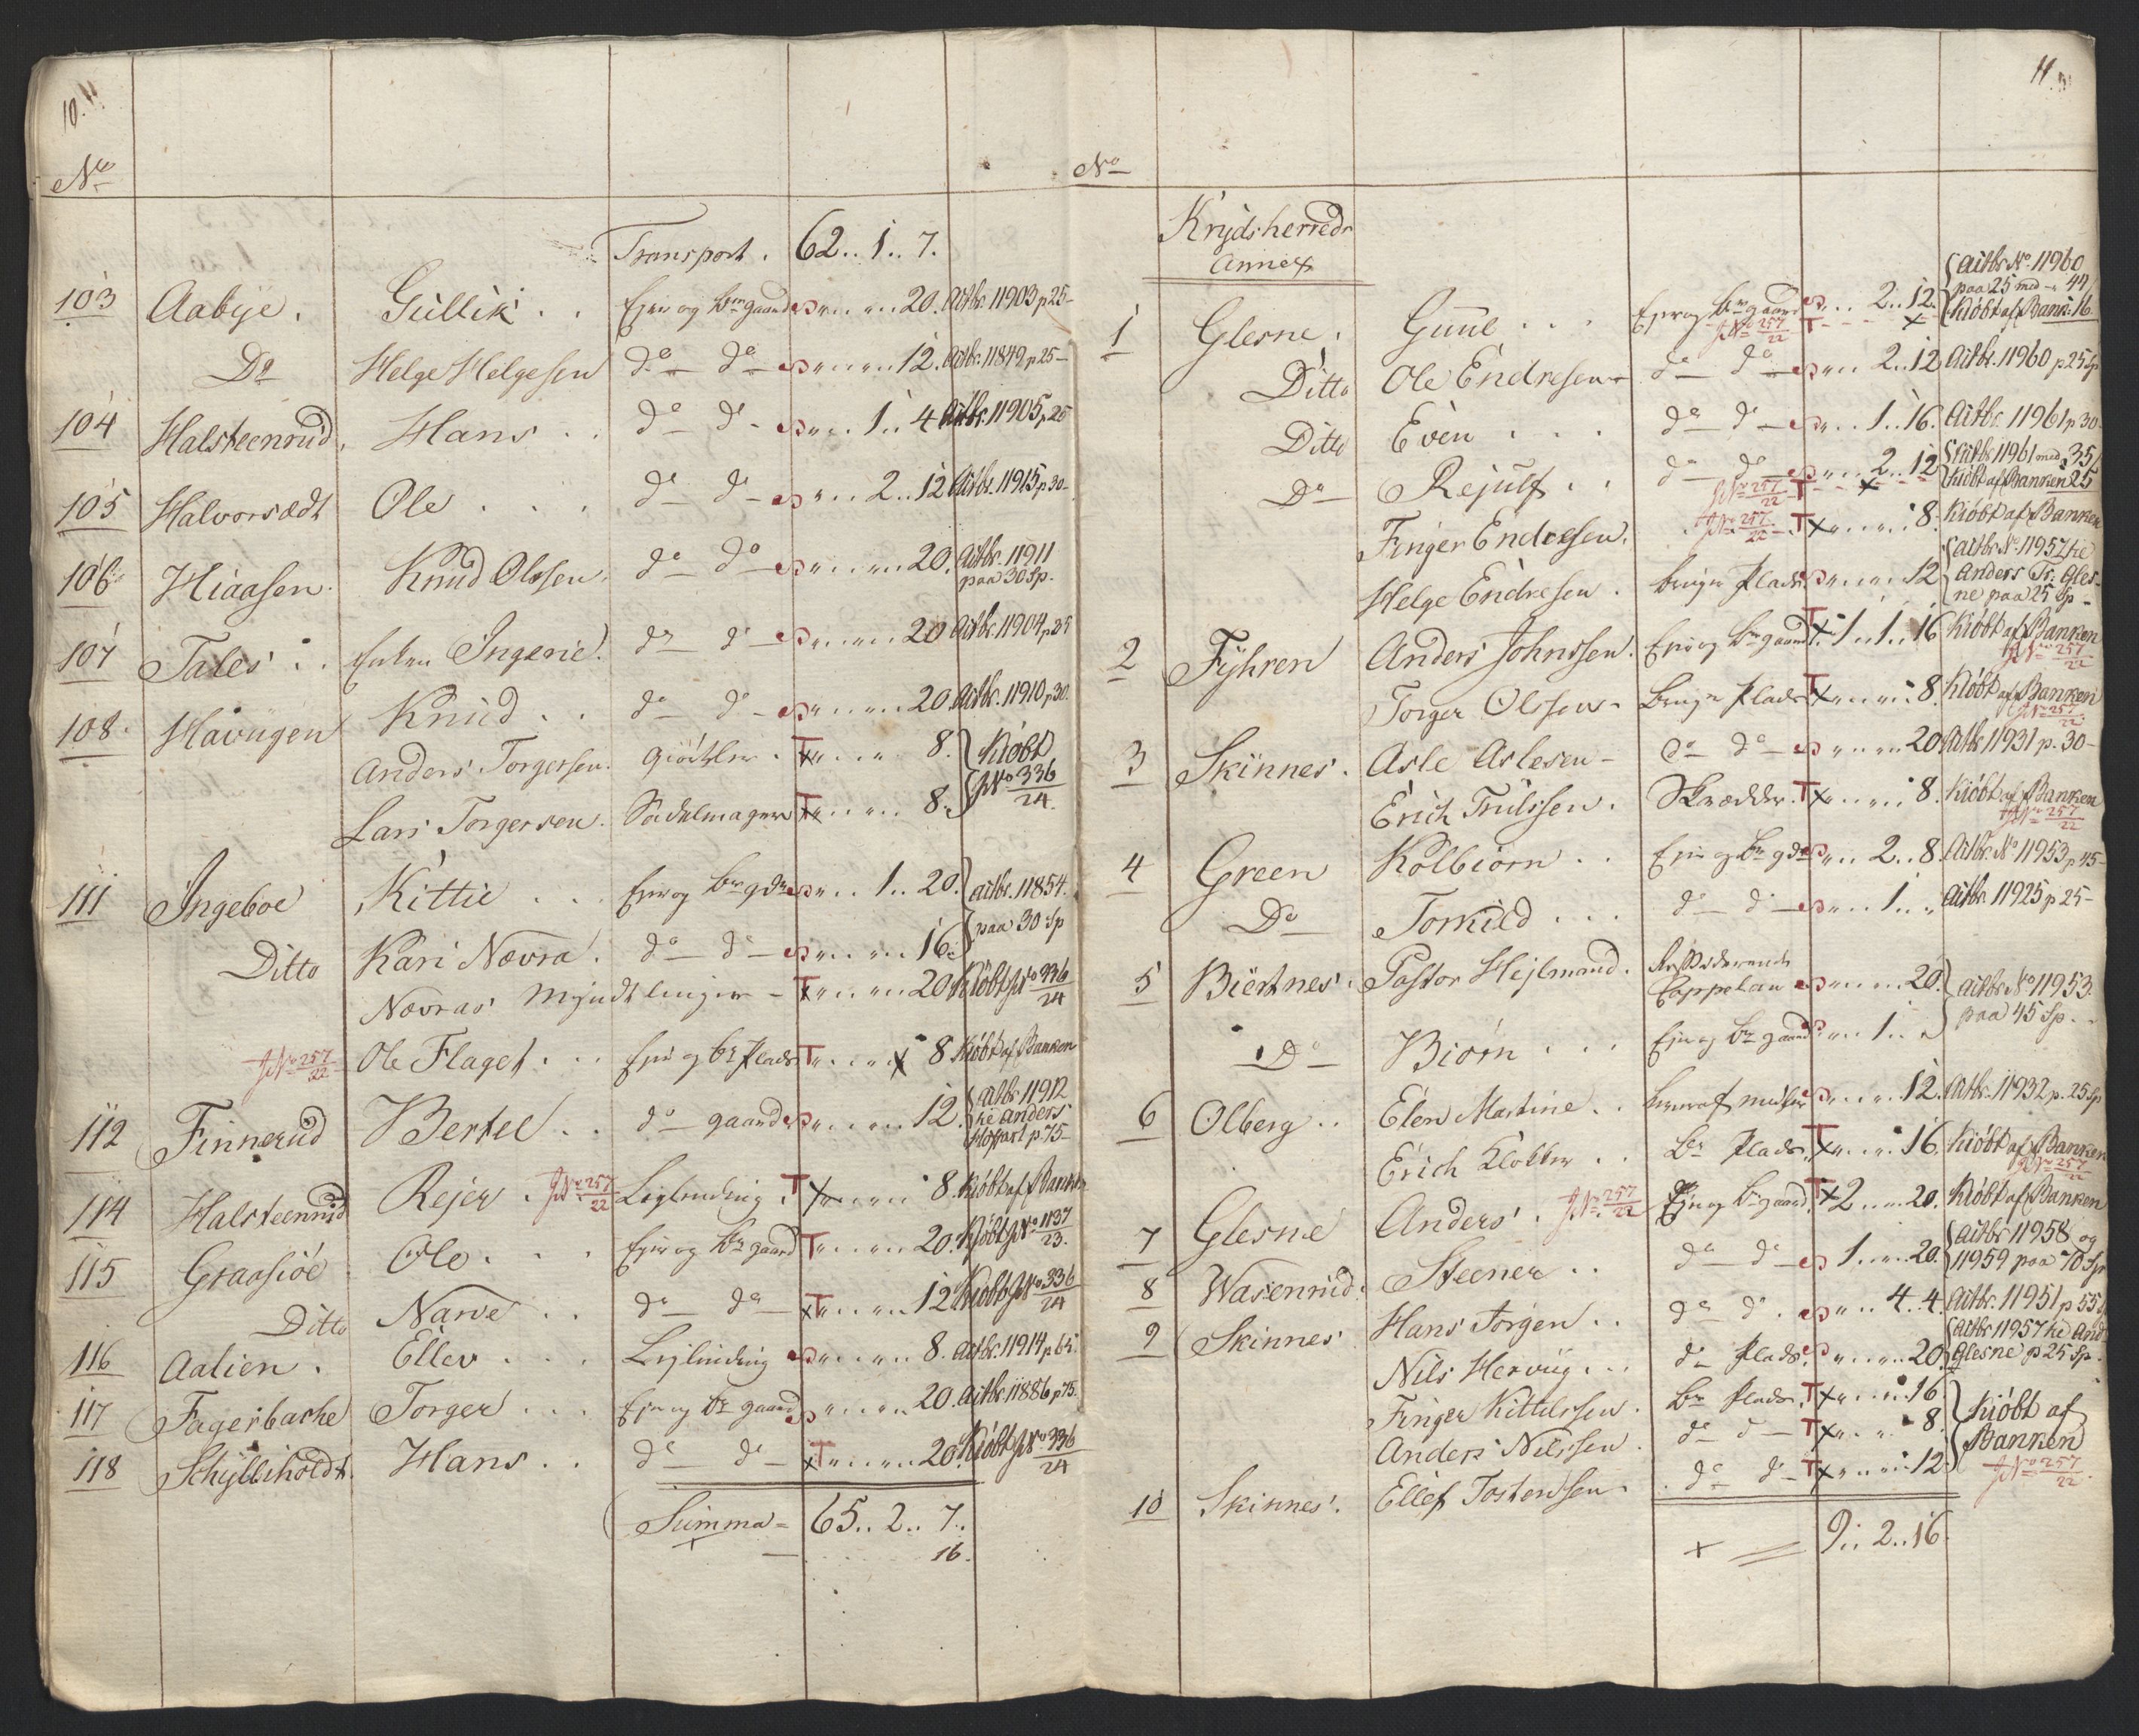 10.
No
Transport . 62.. 1.. 7.
103 Aabye . Gullik . . Ejer og br. gaard " .. " .. 20. Actbr. 11903 p 25 -
Do Helge Helgesen do do " .. " .. 12. Actbr. 11849 p 25 -
104 Halsteenrud, Hans . . do do " .. 1.. 4 Actbr. 11905, p 25
105 Halvorsædt Ole . . . do do " .. 2.. 12 Actbr. 11915, p 30 -
106 Hiaasen . Knud Olssen . do do " .. " .. 20. Actbr. 11911
paa 30 Sp.
107 Tales . . Enken Ingerie . do do " .. " .. 20 Actbr. 11904, p 35
108 . HaVugen Knud . . do do " .. " .. 20 Actbr. 11910, p 30.
Anders Torgersen . Giörtler . T " .. " .. 8. Kiöbt
Lars Torgersen . Sadelmager T " .. " .. 8. No 336/24.
111 Ingeboe Kittie . . . Ejer og br. gd. " .. 1.. 20. actbr. 11854.
paa 30 Sp
Ditto Kari Nævra . do do " .. " .. 16.
Nævras Myndtlinger - T " .. " .. 20 Kiöbt No 336/24
No 257/22 Ole Flaget . . . Ejer og br. Plads T " .. " .. 8 Kiöbt af Banken
112 Finnerud Bertel . . do gaard " .. " .. 12. Actbr. 11912
Anders
p 75 -
114 Halsteenrud Rejer . No 257/22 Lejlending . T " .. " .. 8. Kiöbt af Banken
115 Graasiöe Ole . . . Ejer og br. gaard T " .. " .. 20. Kiöbt No 1137/23.
Ditto Narve . . do do T " .. " .. 12 Kiöbt No 336/24
116 Aalien . Ellev . . . Lejlending " .. " .. 8. Actbr. 11914 p 65.
117 Fagerbacke Torger . . . Ejer og br. gaard " .. " .. 20 Actbr. 11886 p 75.
118 Schylliholdt . Hans . . do do T " .. " .. 20. Kiöbt No 336/24
Summa = 65.. 2.. 7..
16.
11.
No
Krydsherreds
Annex
1 Glesne . Guul . . . Ejer og br. gaard " .. 2.. 12. Actbr. No 11960
paa 25 med - 44
No 257/22 T Kiöbt af Bank. 16.
Ditto Ole Endresen - do do " .. 2.. 12 Actbr. 11960 p 25 Sp
Ditto Even . . . do do " .. 1.. 16. Actbr. 11961 p 30.
Do Rejulf . . do do " .. 2.. 12 Actbr. 11961 med 35
No 257/22 T Kiöbt af Banken 25
Finger Endresen . No 257/22 T " .. " .. 8. Kiöbt af Banken
Helge Endresen . bruger Plads " .. " .. 12 Actbr. No 11957
Anders Tr. Gles-
ne paa 25 Sp -
2 Fyhren Anders Johnssen . Ejer og br. gaard T 1.. 1.. 16 Kiöbt af Banken
No 257/22
Torger Olssen - bruger Plads T " .. " .. 8. Kiöbt af Banken
No 257/22
3 Skinnes . Asle Aslesen - do do " .. " .. 20 Actbr. 11931 p. 30 -
Erich Trulssen . Skrædder . T " .. " .. 8. Kiöbt af Banken
No 257/22
4 Green Kolbiörn . . Ejer og br. gd. " .. 2.. 8. Actbr. No 11953, p 45 -
Do Torkild . . . do do " .. 1.. " Actbr. 11925 p 25 -
5 Biertnes . Pastor Hejlmand . Residerende
Cappelan " .. " .. 20. Actbr. No 11953.
paa 45 Sp . -
Do Biörn . . . Ejer og br. gaard " .. 1.. "
6 Olberg . . Elen Martine . . " .. " .. 12. Actbr. 11932 p. 25 Sp
Erich Klokker . . br. Plads . T " .. " .. 16. Kiöbt af Banken
No 257/22
7 Glesne Anders . No 257/22 Ejer og br. gaard . T 2 .. " .. 20. Kiöbt af Banken
8 Wasenrud . Steener . . do do 1 .. " .. 20. Actbr. 11958 og
11959 paa 70 Sp
9 Skinnes Hans Jörgen . . do do . " .. 4.. 4. Actbr. 11951 p 55
Nils Hervig . . . do Plads . " .. " .. 20. Actbr. 11957 And
Glesne p 25 Sp .
Finger Kittelssen . br. Plads . T " .. " .. 16. Kiöbt af
Anders Nilssen . do do T " .. " .. 8 Banken
10 Skinnes . Ellef Tostenssen . do do T " .. " .. 12. No 257/22
9.. 2.. 16.